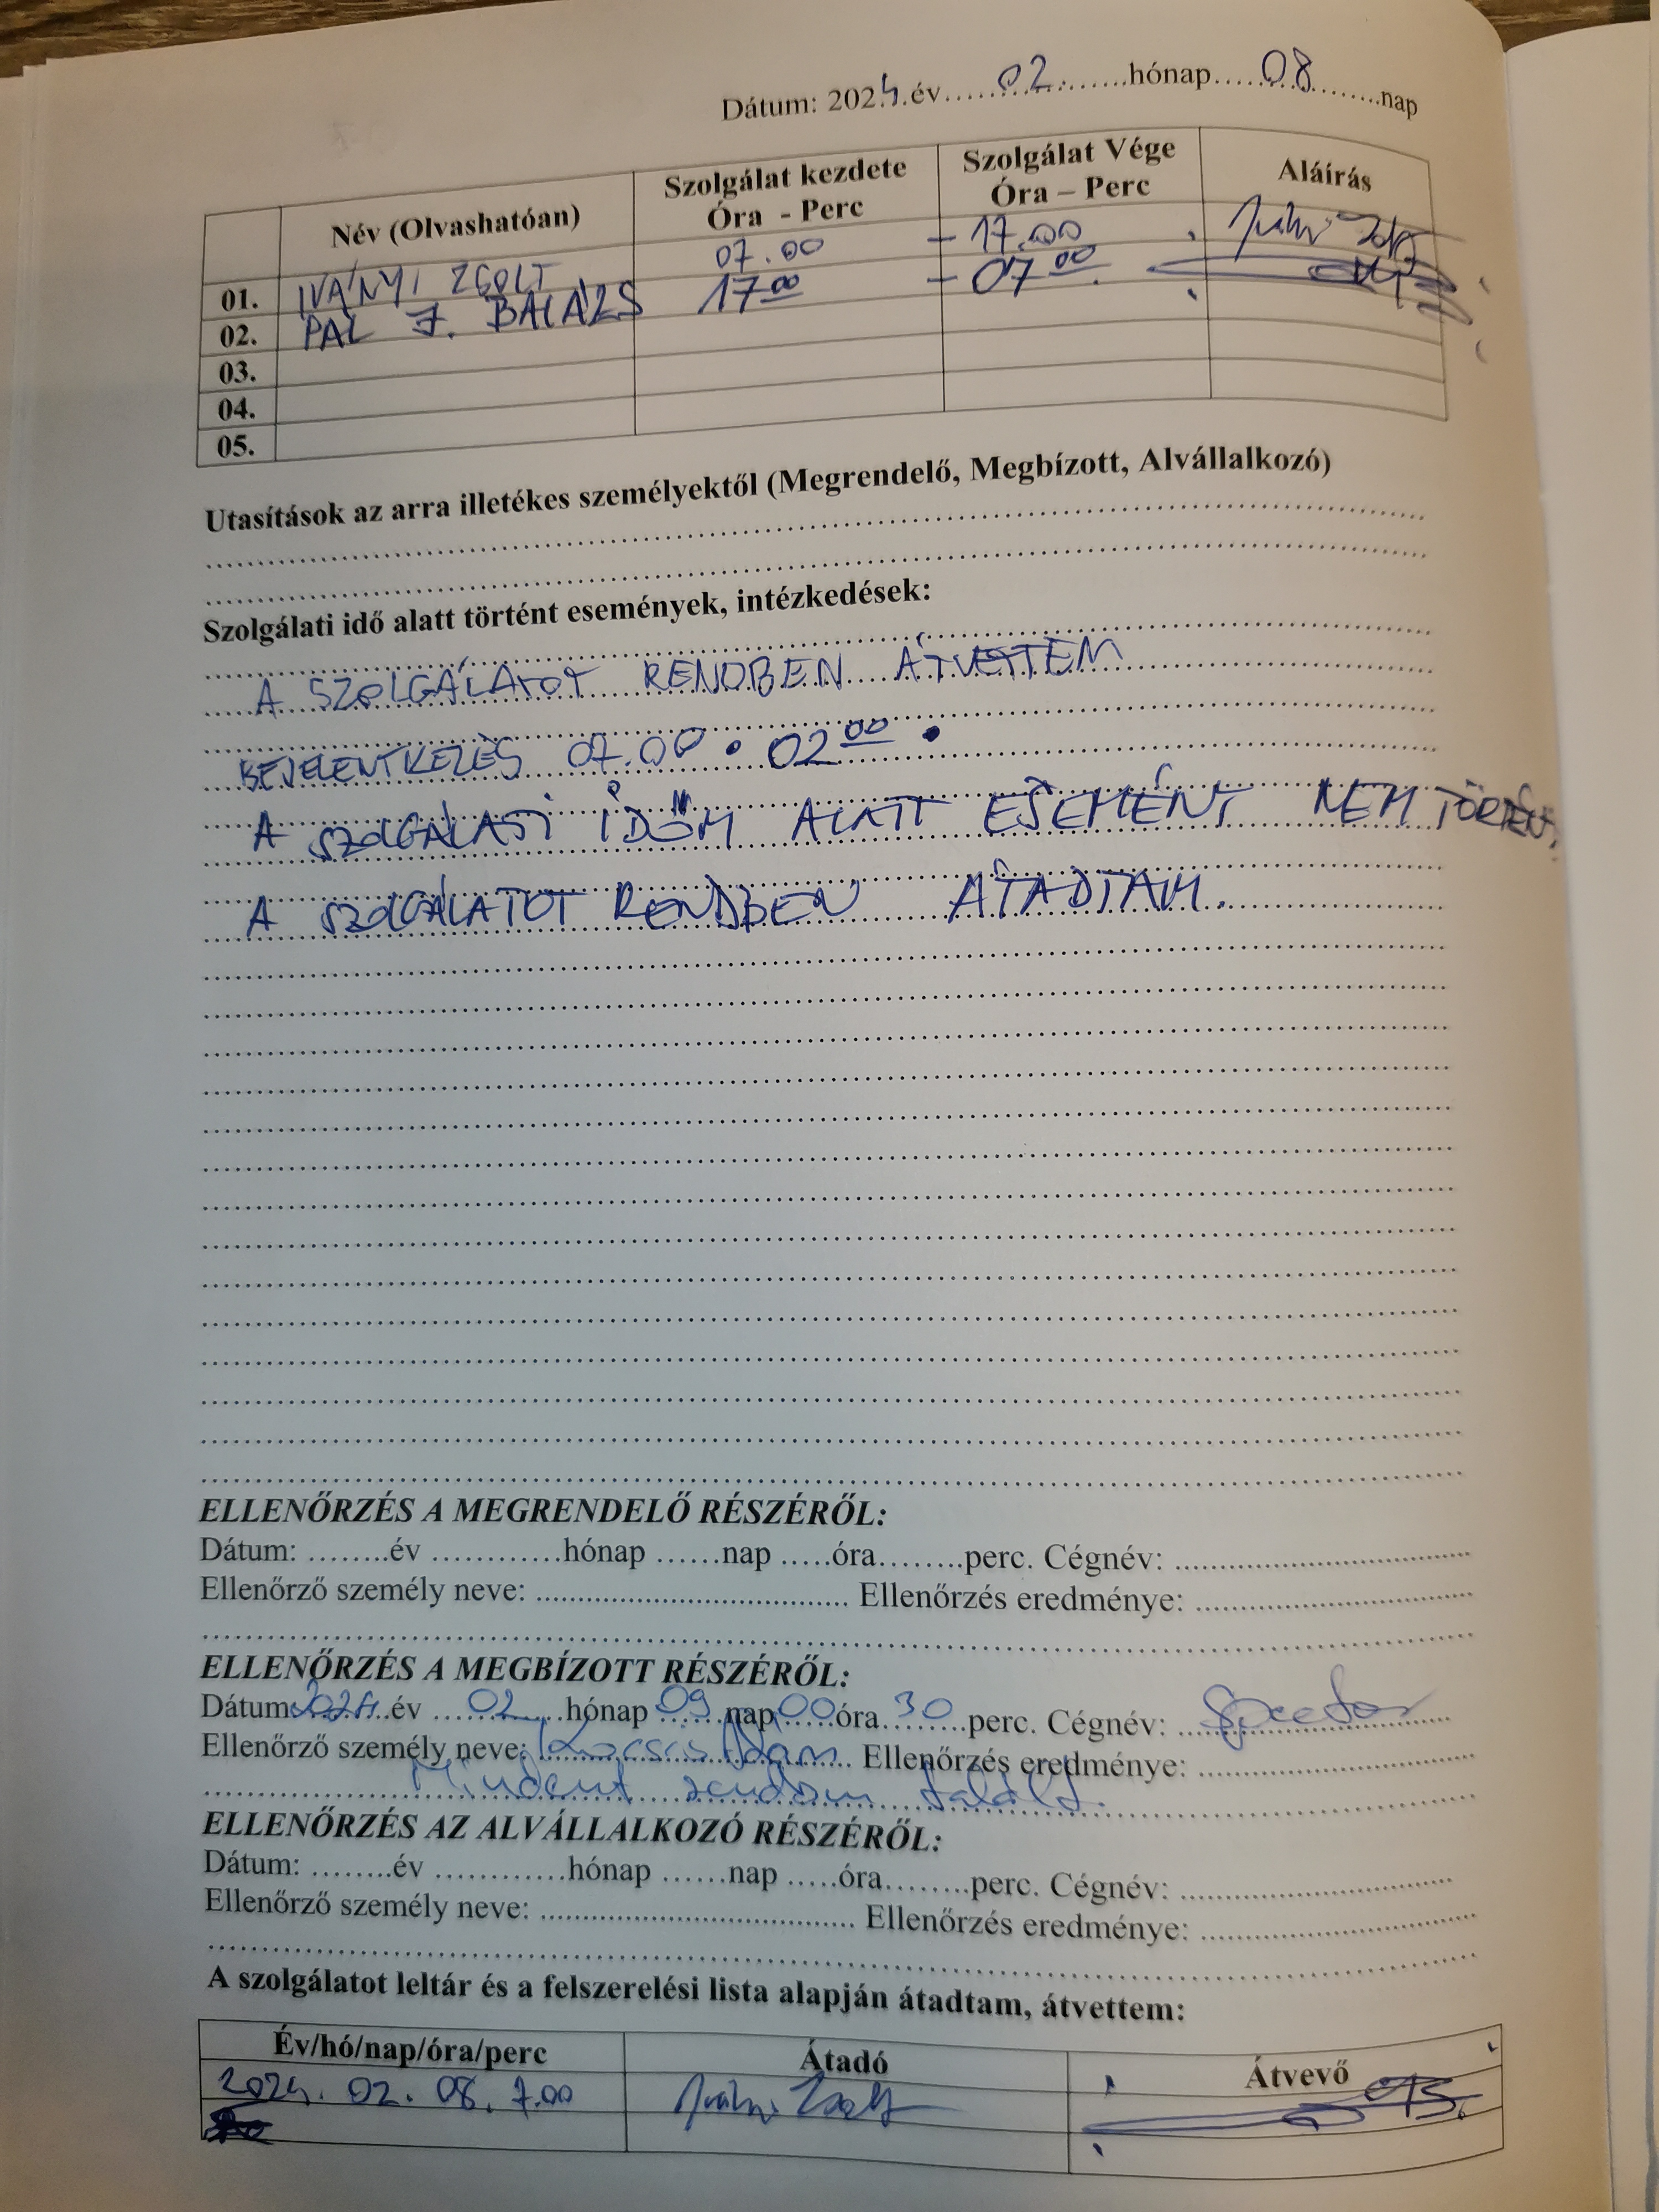 Dátum: 2024.év 02 hónap 08 nap
Név (Olvashatóan) Szolgálat kezdete Óra - Perc Szolgálat Vége Óra – Perc Aláírás
01. IVÁNYI ZSOLT 07.00 – 17.00
02. PÁL F. BALÁZS 17⁰⁰ – 07⁰⁰
03.
04.
05.
Utasítások az arra illetékes személyektől (Megrendelő, Megbízott, Alvállalkozó)
Szolgálati idő alatt történt események, intézkedések:
A SZOLGÁLATOT RENDBEN ÁTVETTEM
BEJELENTKEZÉS 07.00 • 02⁰⁰ •
A SZOLGÁLATI IDŐM ALATT ESEMÉNY NEM TÖRTÉNT.
A SZOLGÁLATOT RENDBEN ÁTADTAM.
ELLENŐRZÉS A MEGRENDELŐ RÉSZÉRŐL:
Dátum: ........év ............hónap ......nap .....óra........perc. Cégnév: ..............................
Ellenőrző személy neve: .................................. Ellenőrzés eredménye: ..............................
ELLENŐRZÉS A MEGBÍZOTT RÉSZÉRŐL:
Dátum: 2024 év 02 hónap 09 nap 00 óra 30 perc. Cégnév:
Ellenőrző személy neve: Kocsis Ádám Ellenőrzés eredménye:
Mindent rendben talált.
ELLENŐRZÉS AZ ALVÁLLALKOZÓ RÉSZÉRŐL:
Dátum: ........év ............hónap ......nap .....óra........perc. Cégnév: ..............................
Ellenőrző személy neve: .................................. Ellenőrzés eredménye: ..............................
A szolgálatot leltár és a felszerelési lista alapján átadtam, átvettem:
Év/hó/nap/óra/perc Átadó Átvevő
2024. 02. 08. 7.00